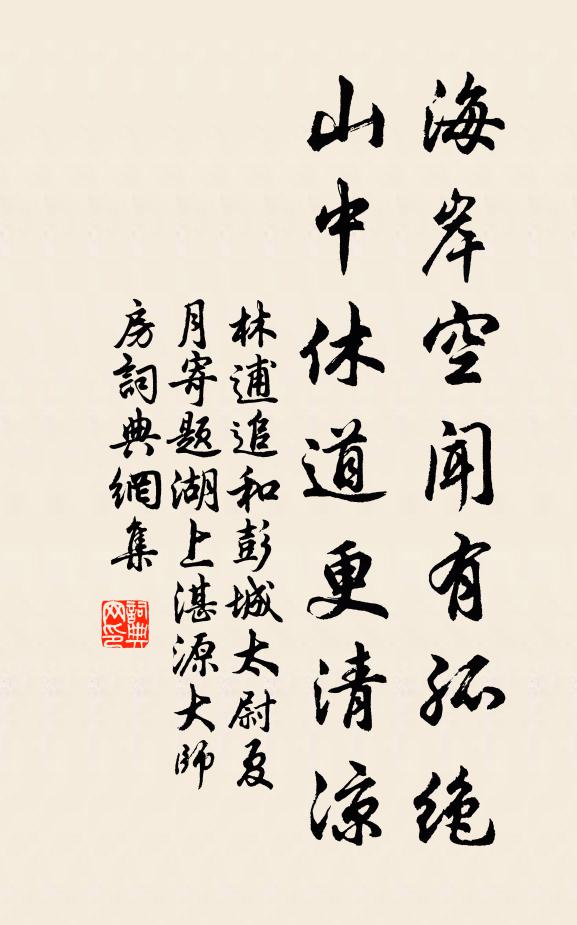 海岸空聞有孤絶
山中休道更清涼
林逋追和彭城太尉夏
月寄題湖上湛源大師
房詞典網集
詞典
网印